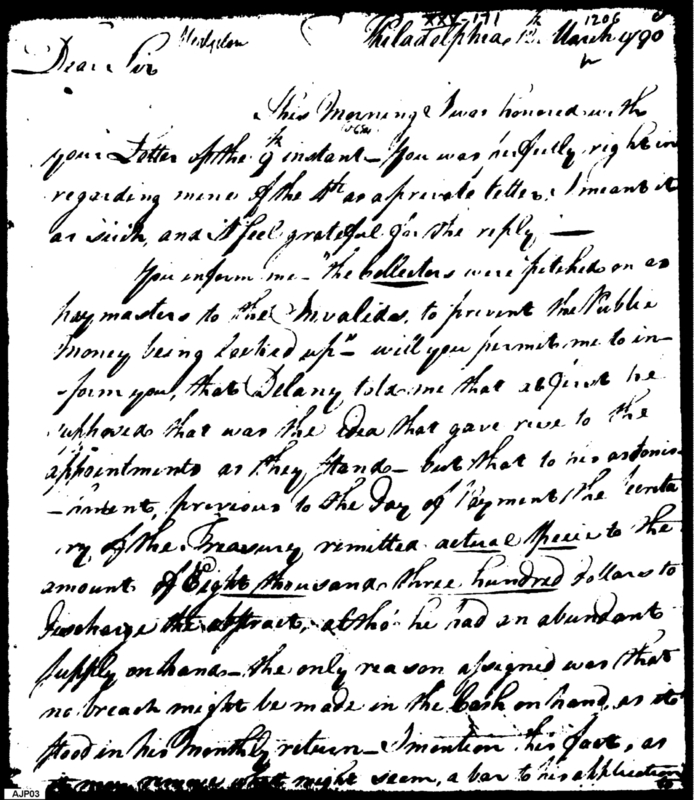 XXV-171 1206
Philadelphia, 12th March 1790
Dear Sir
This Morning I was honored with
your Letter of the 9th instant— You was perfectly right in
regarding mine of the 4th as a private letter, I meant it
as such, and I feel grateful for the reply —
You inform me— "the Collectors were pitched on as
paymasters to the Invalids, to prevent the Public
money being locked up"— will you permit me to in-
-form you, that Delany told me that at first he
supposed that was the idea that gave rise to the
appointments as they stand— but that to his astonish
-ment, previous to the Day of Payment the Secreta
ry of the Treasury remitted actual specie to the
amount of Eight thousand three hundred dollars to
discharge the abstract, altho' he had an abundant
supply on hand— the only reason assigned was that
no breach might be made in the Cash on hand, as it
stood in his Monthly return— I mention this fact, as
it may remove what might seem, a bar to his application
to
AJP03